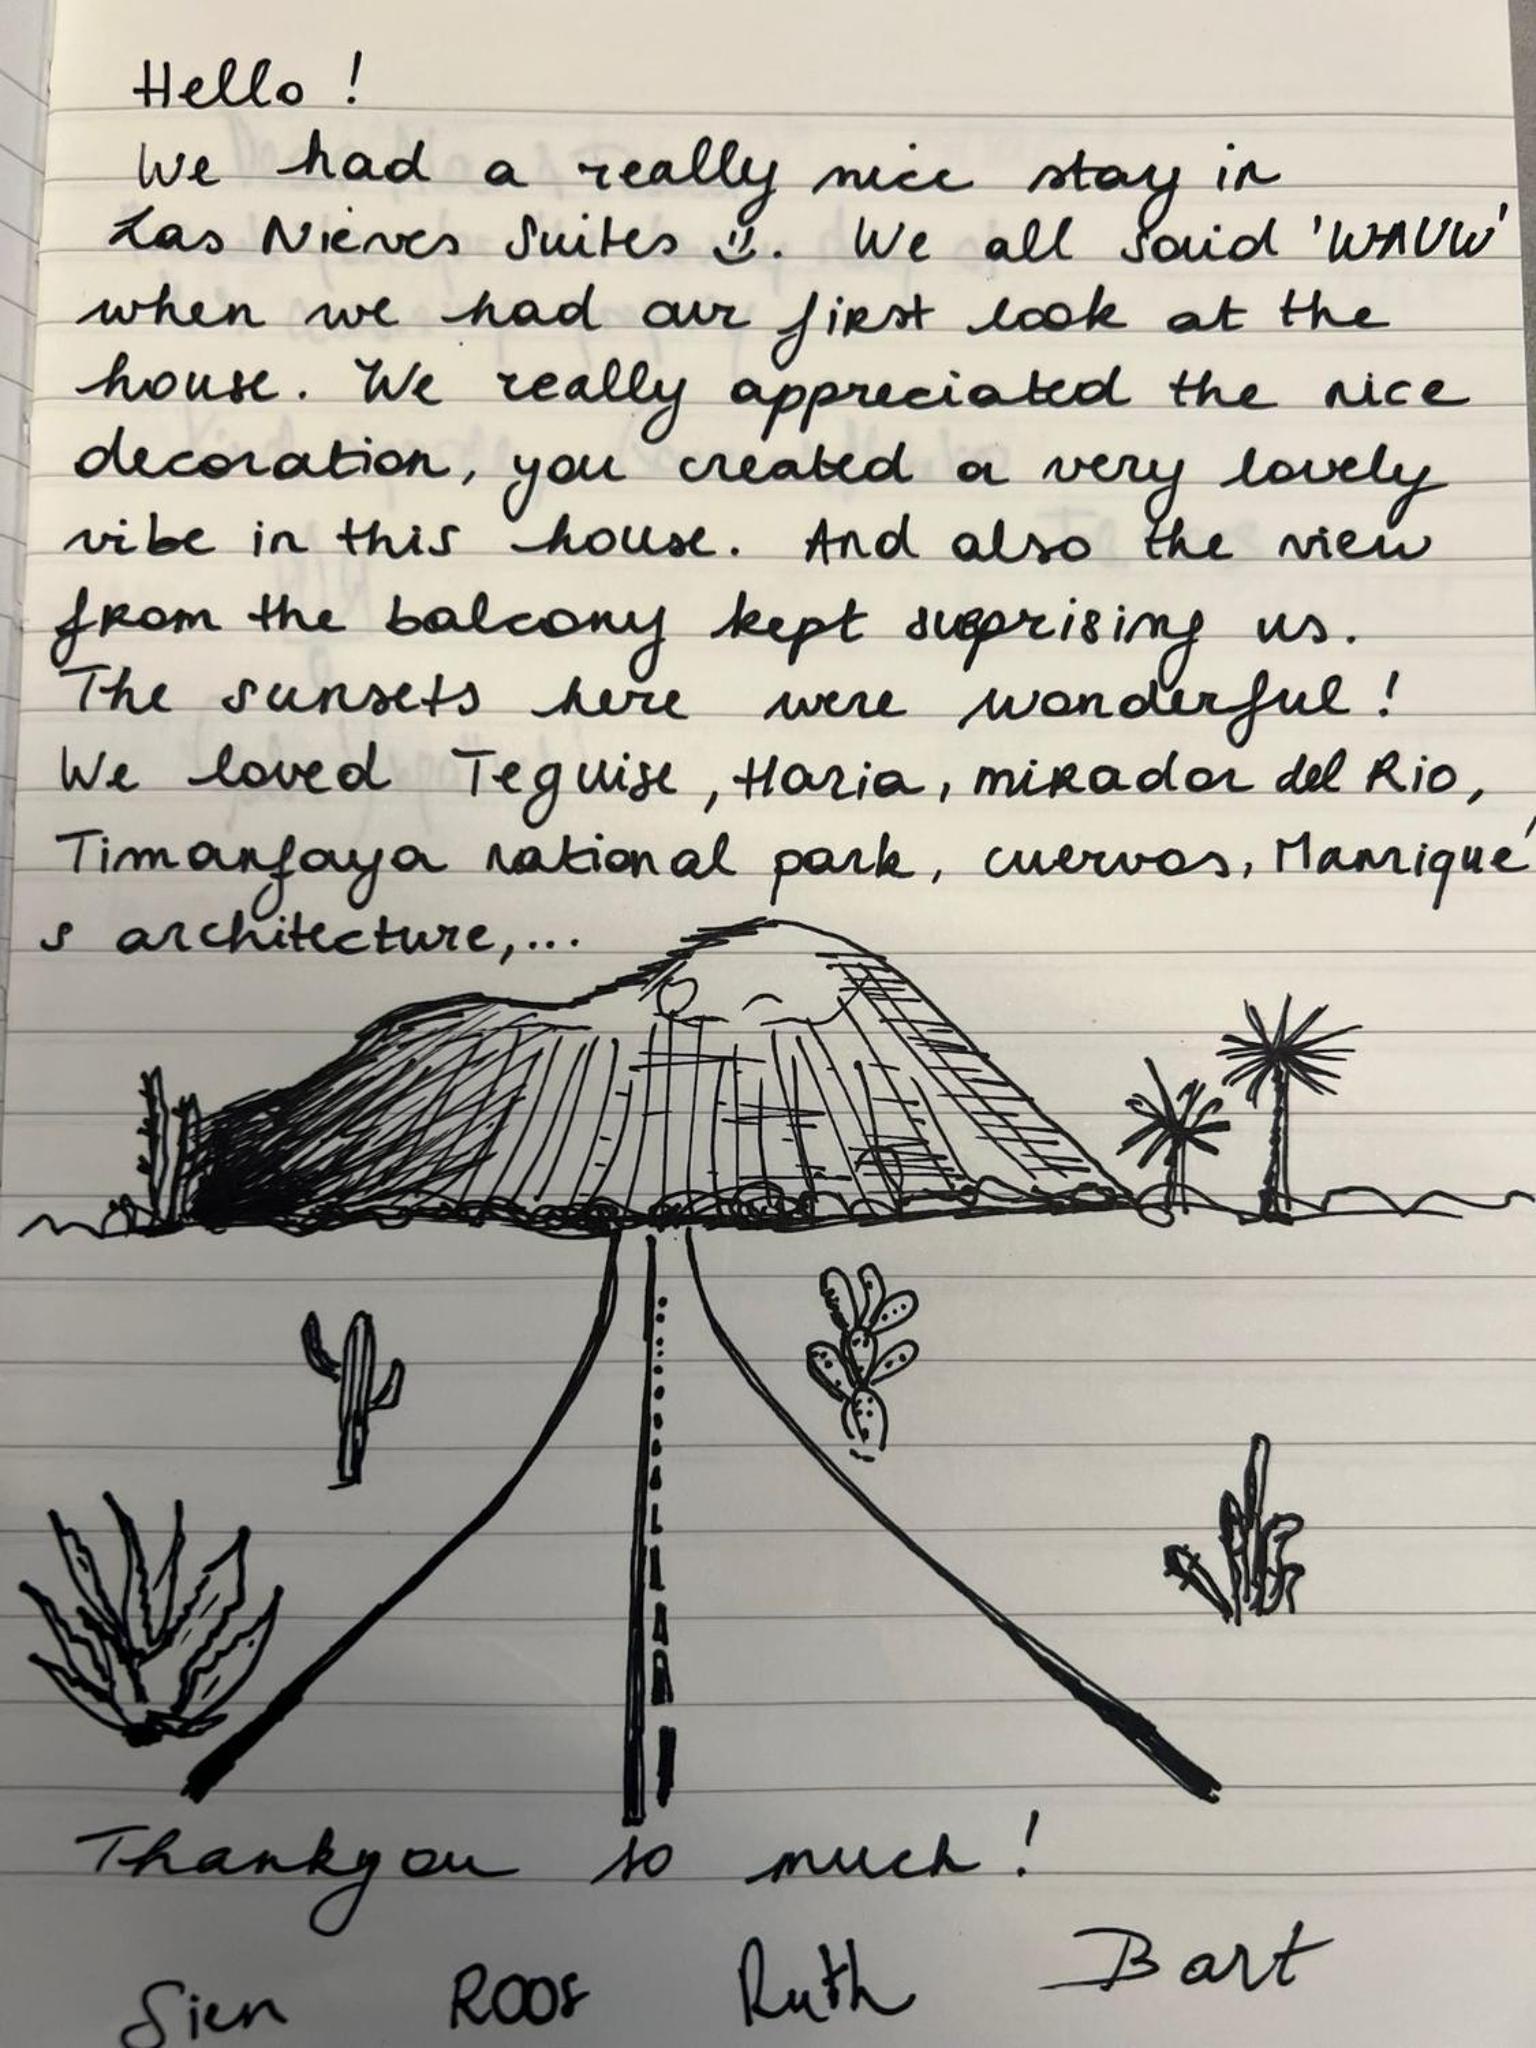 Hello !
We had a really nice stay in
Las Nieves Suites :). We all said 'WAUW'
when we had our first look at the
house. We really appreciated the nice
decoration, you created a very lovely
vibe in this house. And also the view
from the balcony kept surprising us.
The sunsets here were wonderful !
We loved Teguise, Haria, mirador del Rio,
Timanfaya national park, cuervos, Manrique'
s architecture,...
Thankyou so much !
Sien Roos Ruth Bart